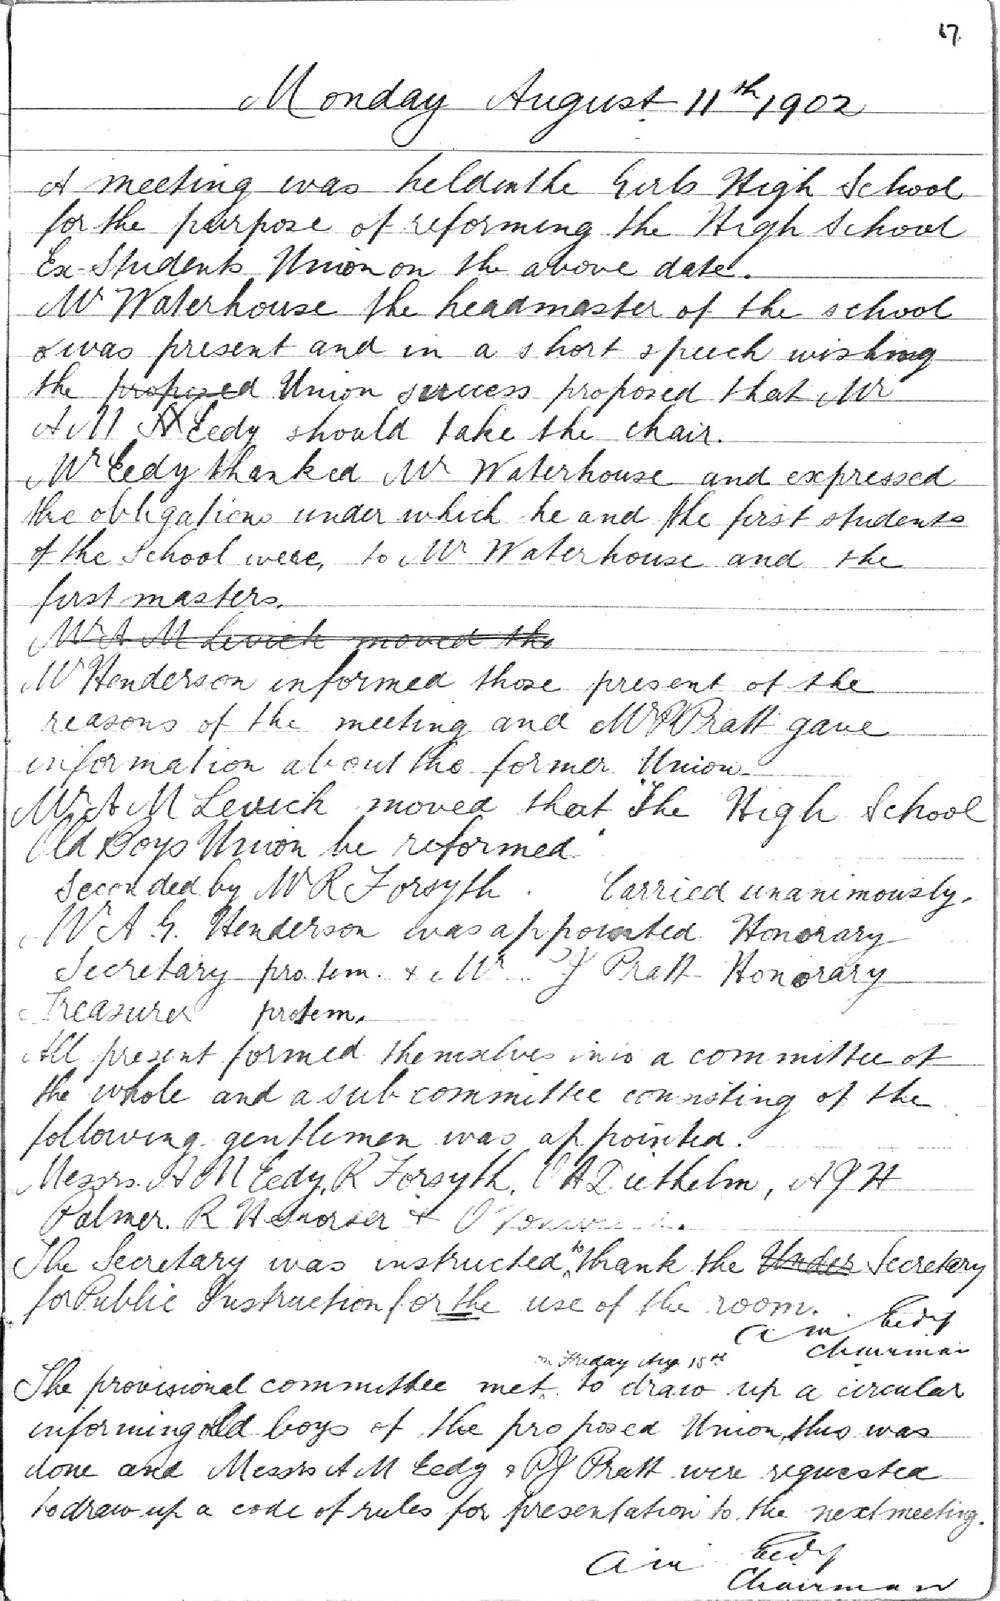 17.
Monday August 11th 1902
A meeting was held in the Girls High School
for the purpose of reforming the High School
Ex-Students Union on the above date.
Mr Waterhouse the headmaster of the school
& was present and in a short speech wishing
the proposed Union success proposed that Mr
A M Eedy should take the chair.
Mr Eedy thanked Mr Waterhouse and expressed
the obligations under which he and the first students
of the School were, to Mr Waterhouse and the
first masters.
Mr A M Levick moved the
Mr Henderson informed those present of the
reasons of the meeting and Mr Pratt gave
information about the former Union.
Mr A M Levick moved that "The High School
Old Boys Union be reformed"
Seconded by Mr R Forsyth. Carried unanimously.
Mr A. G. Henderson was appointed Honorary
Secretary pro tem. & Mr J Pratt Honorary
Treasurer protem.
All present formed themselves into a committee of
the whole and a sub committee consisting of the
following gentlemen was appointed.
Messrs. A M Eedy, R Forsyth, A Diethelm, A J H
Palmer. R &
The Secretary was instructed to thank the Under Secretary
for Public Instruction for the use of the room.
A M Eedy
Chairman
on Friday Aug 15th
The provisional committee met to draw up a circular
informing old boys of the proposed Union, this was
done and Messrs A M Eedy & P J Pratt were requested
to draw up a code of rules for presentation to the next meeting.
A M Eedy
Chairman